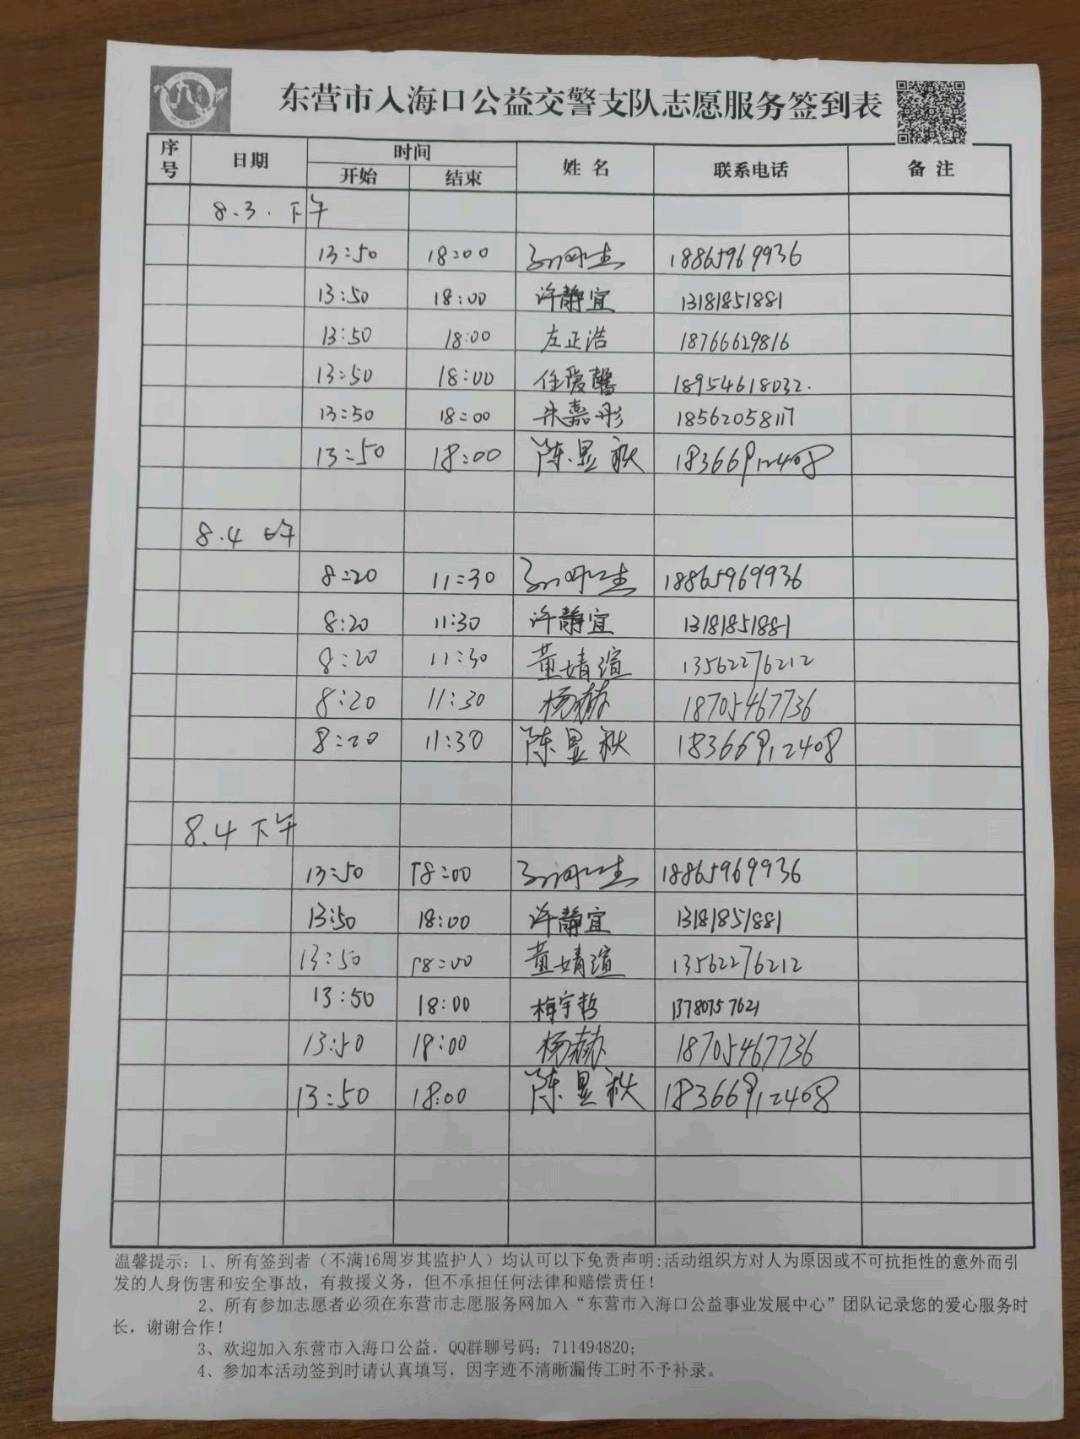 东营市入海口公益交警支队志愿服务签到表
序号 日期 时间 姓名 联系电话 备注
开始 结束
8.3.下午
13:50 18:00 18865969936
13:50 18:00 许静宜 13181851881
13:50 18:00 左正浩 18766629816
13:50 18:00 任爱馨 18954618032.
13:50 18:00 朱嘉彤 18562058117
13:50 18:00 陈昱秋 18366912408
8.4
8:20 11:30 18865969936
8:20 11:30 许静宜 13181851881
8:20 11:30 董婧瑄 13562276212
8:20 11:30 杨赫 18705467736
8:20 11:30 陈昱秋 18366912408
8.4下午
13:50 18:00 18865969936
13:50 18:00 许静宜 13181851881
13:50 18:00 董婧瑄 13562276212
13:50 18:00 梅宇哲 13780757621
13:50 18:00 杨赫 18705467736
13:50 18:00 陈昱秋 18366912408
温馨提示:1、所有签到者(不满16周岁其监护人)均认可以下免责声明:活动组织方对人为原因或不可抗拒性的意外而引
发的人身伤害和安全事故,有救援义务,但不承担任何法律和赔偿责任!
2、所有参加志愿者必须在东营市志愿服务网加入“东营市入海口公益事业发展中心”团队记录您的爱心服务时
长,谢谢合作!
3、欢迎加入东营市入海口公益,QQ群聊号码:711494820;
4、参加本活动签到时请认真填写,因字迹不清晰漏传工时不予补录。